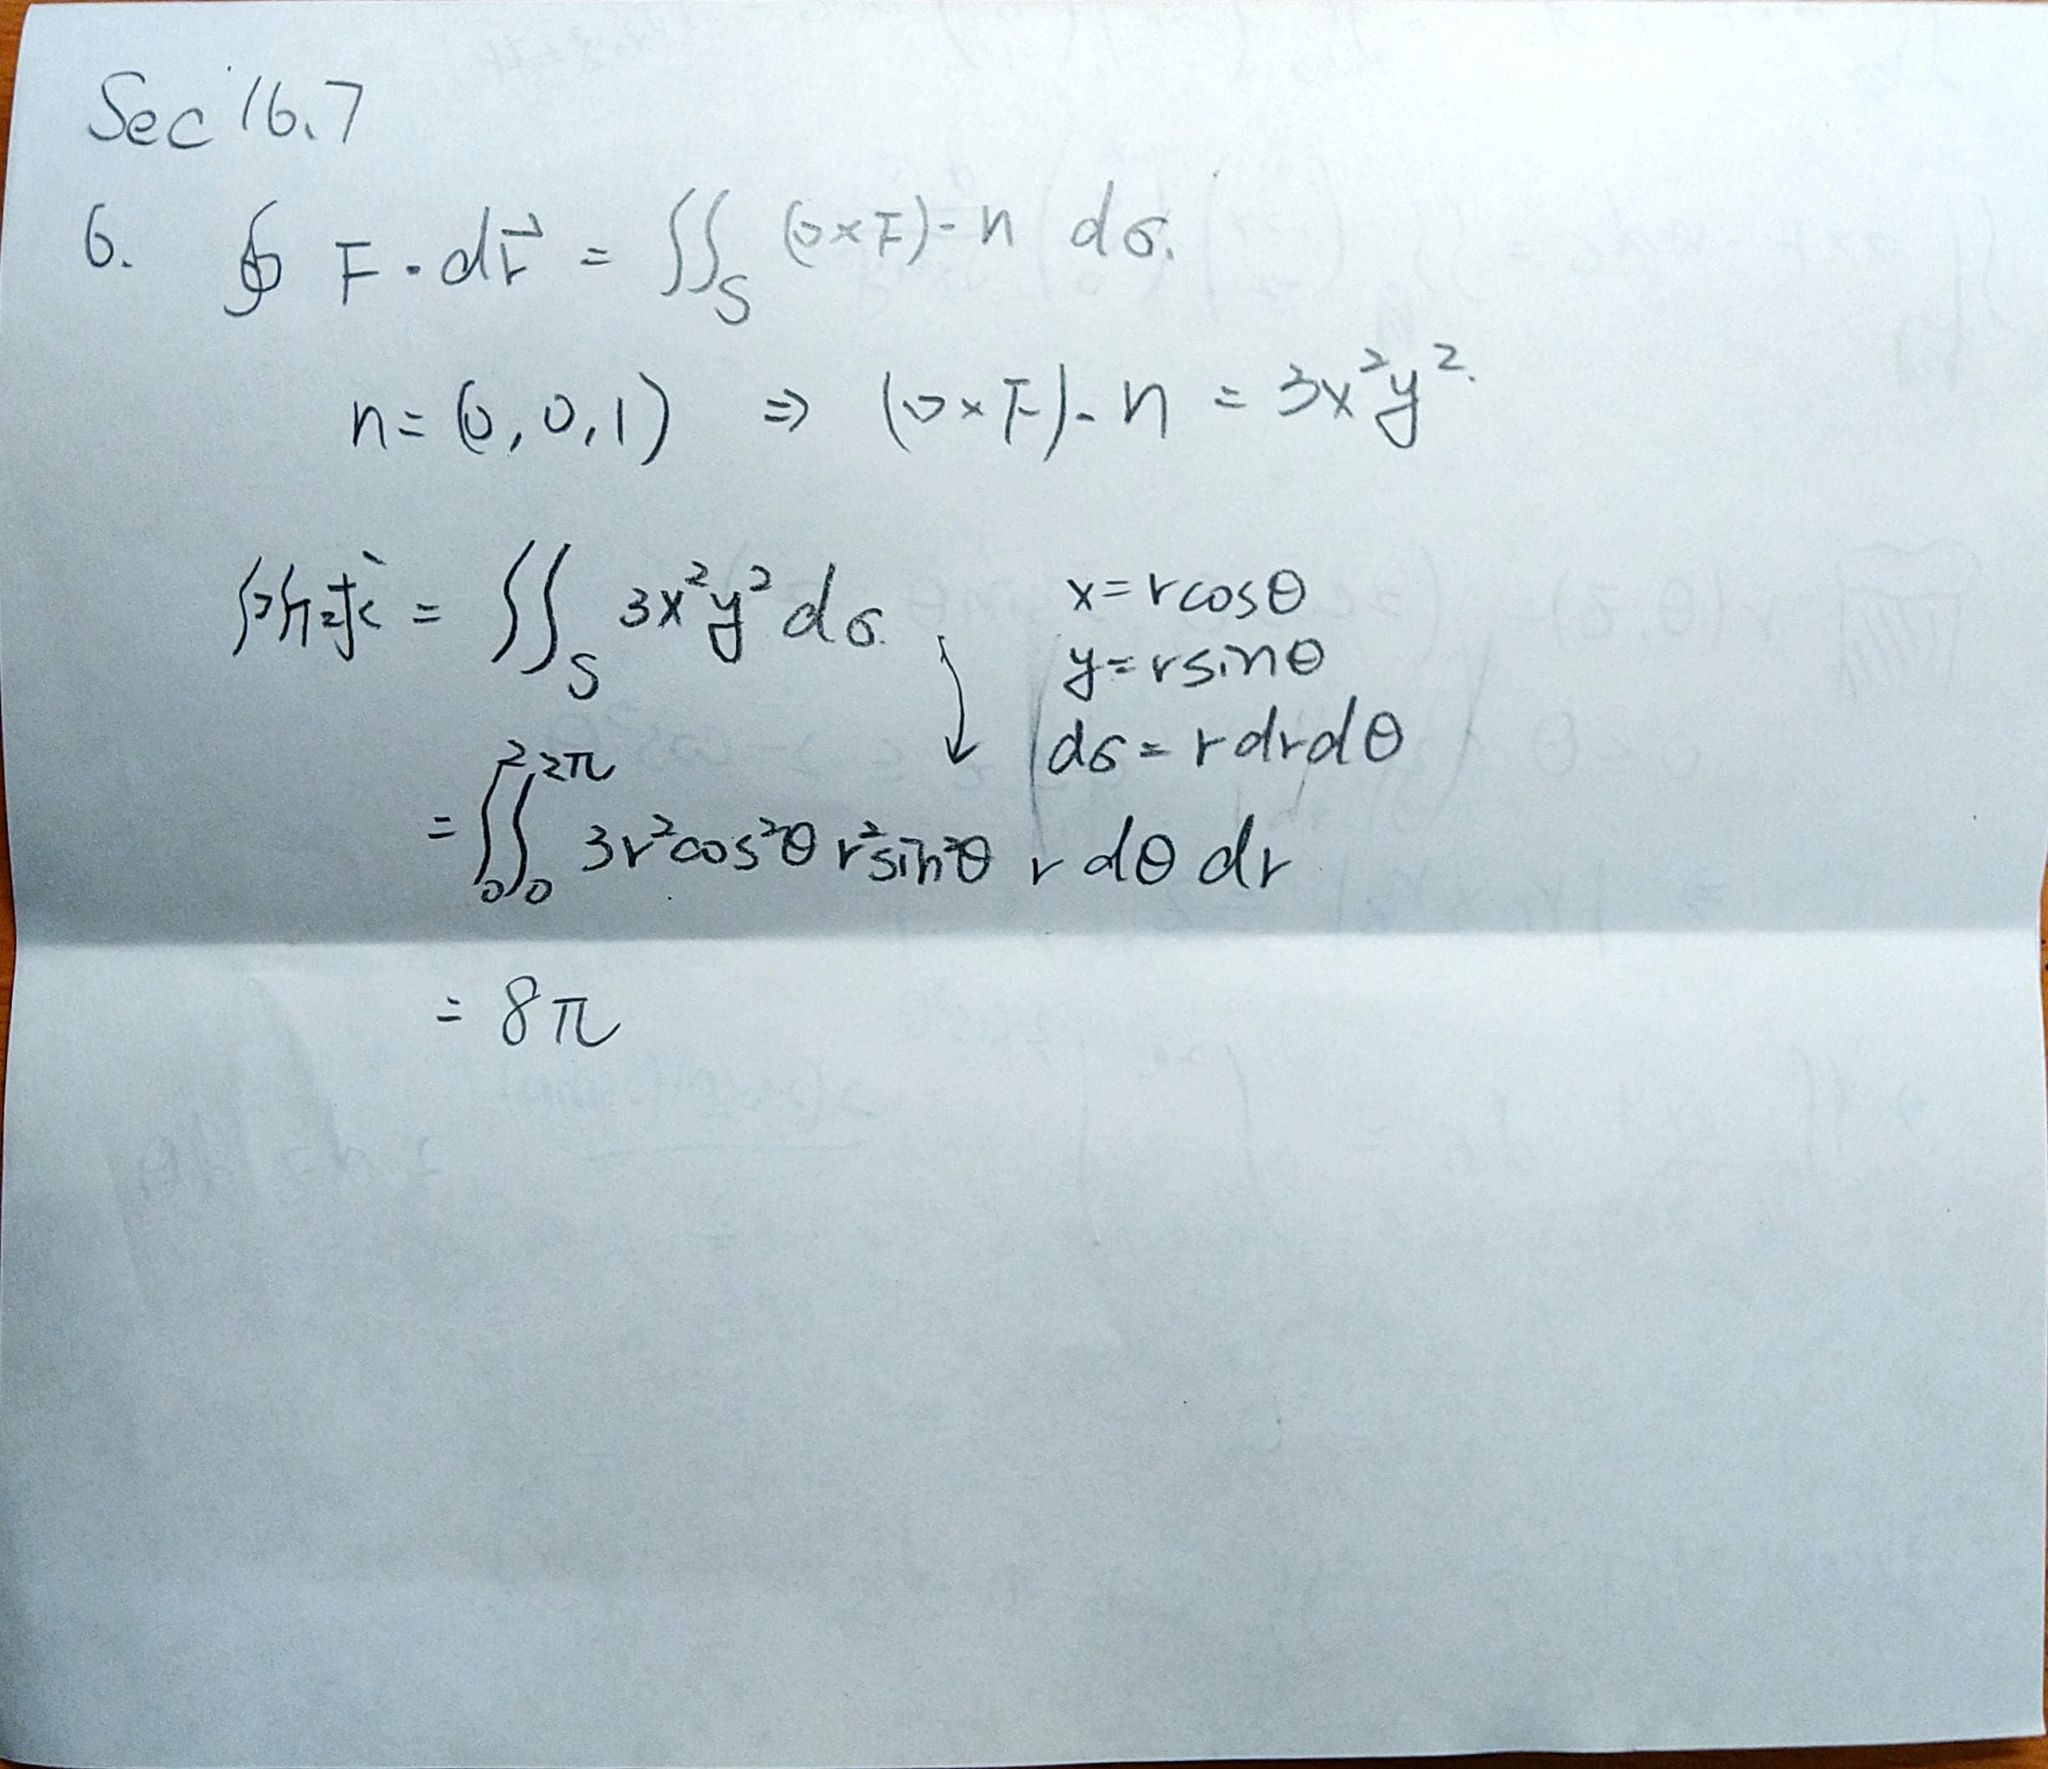 Sec 16.7
6. ∮ F · dr⃗ = ∬_S (∇×F)·n dσ.
n = (0, 0, 1) ⇒ (∇×F)·n = 3x²y².
所求 = ∬_S 3x²y² dσ.
x = r cosθ
y = r sinθ
dσ = r dr dθ
= ∫₀² ∫₀^{2π} 3r² cos²θ r² sin²θ r dθ dr
= 8π